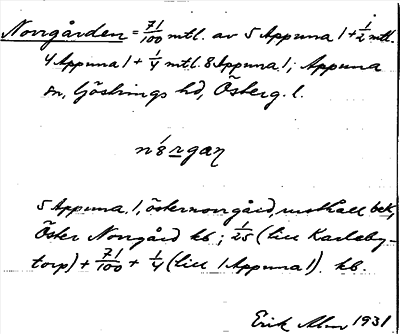 Norrgården = 71/100 mtl. av 5 Appuna 1 + 1/2 mtl.
4 Appuna 1 + 1/4 mtl. 8 Appuna 1; Appuna
sn, Göstrings hd, Österg. l.
5 Appuna 1, östernorrgård, rusthåll bek,
Öster Norrgård kb; 1/25 (till Karleby-
torp) + 71/100 + 1/4 (till 1 Appuna 1). kb.
Erik Alm 1931